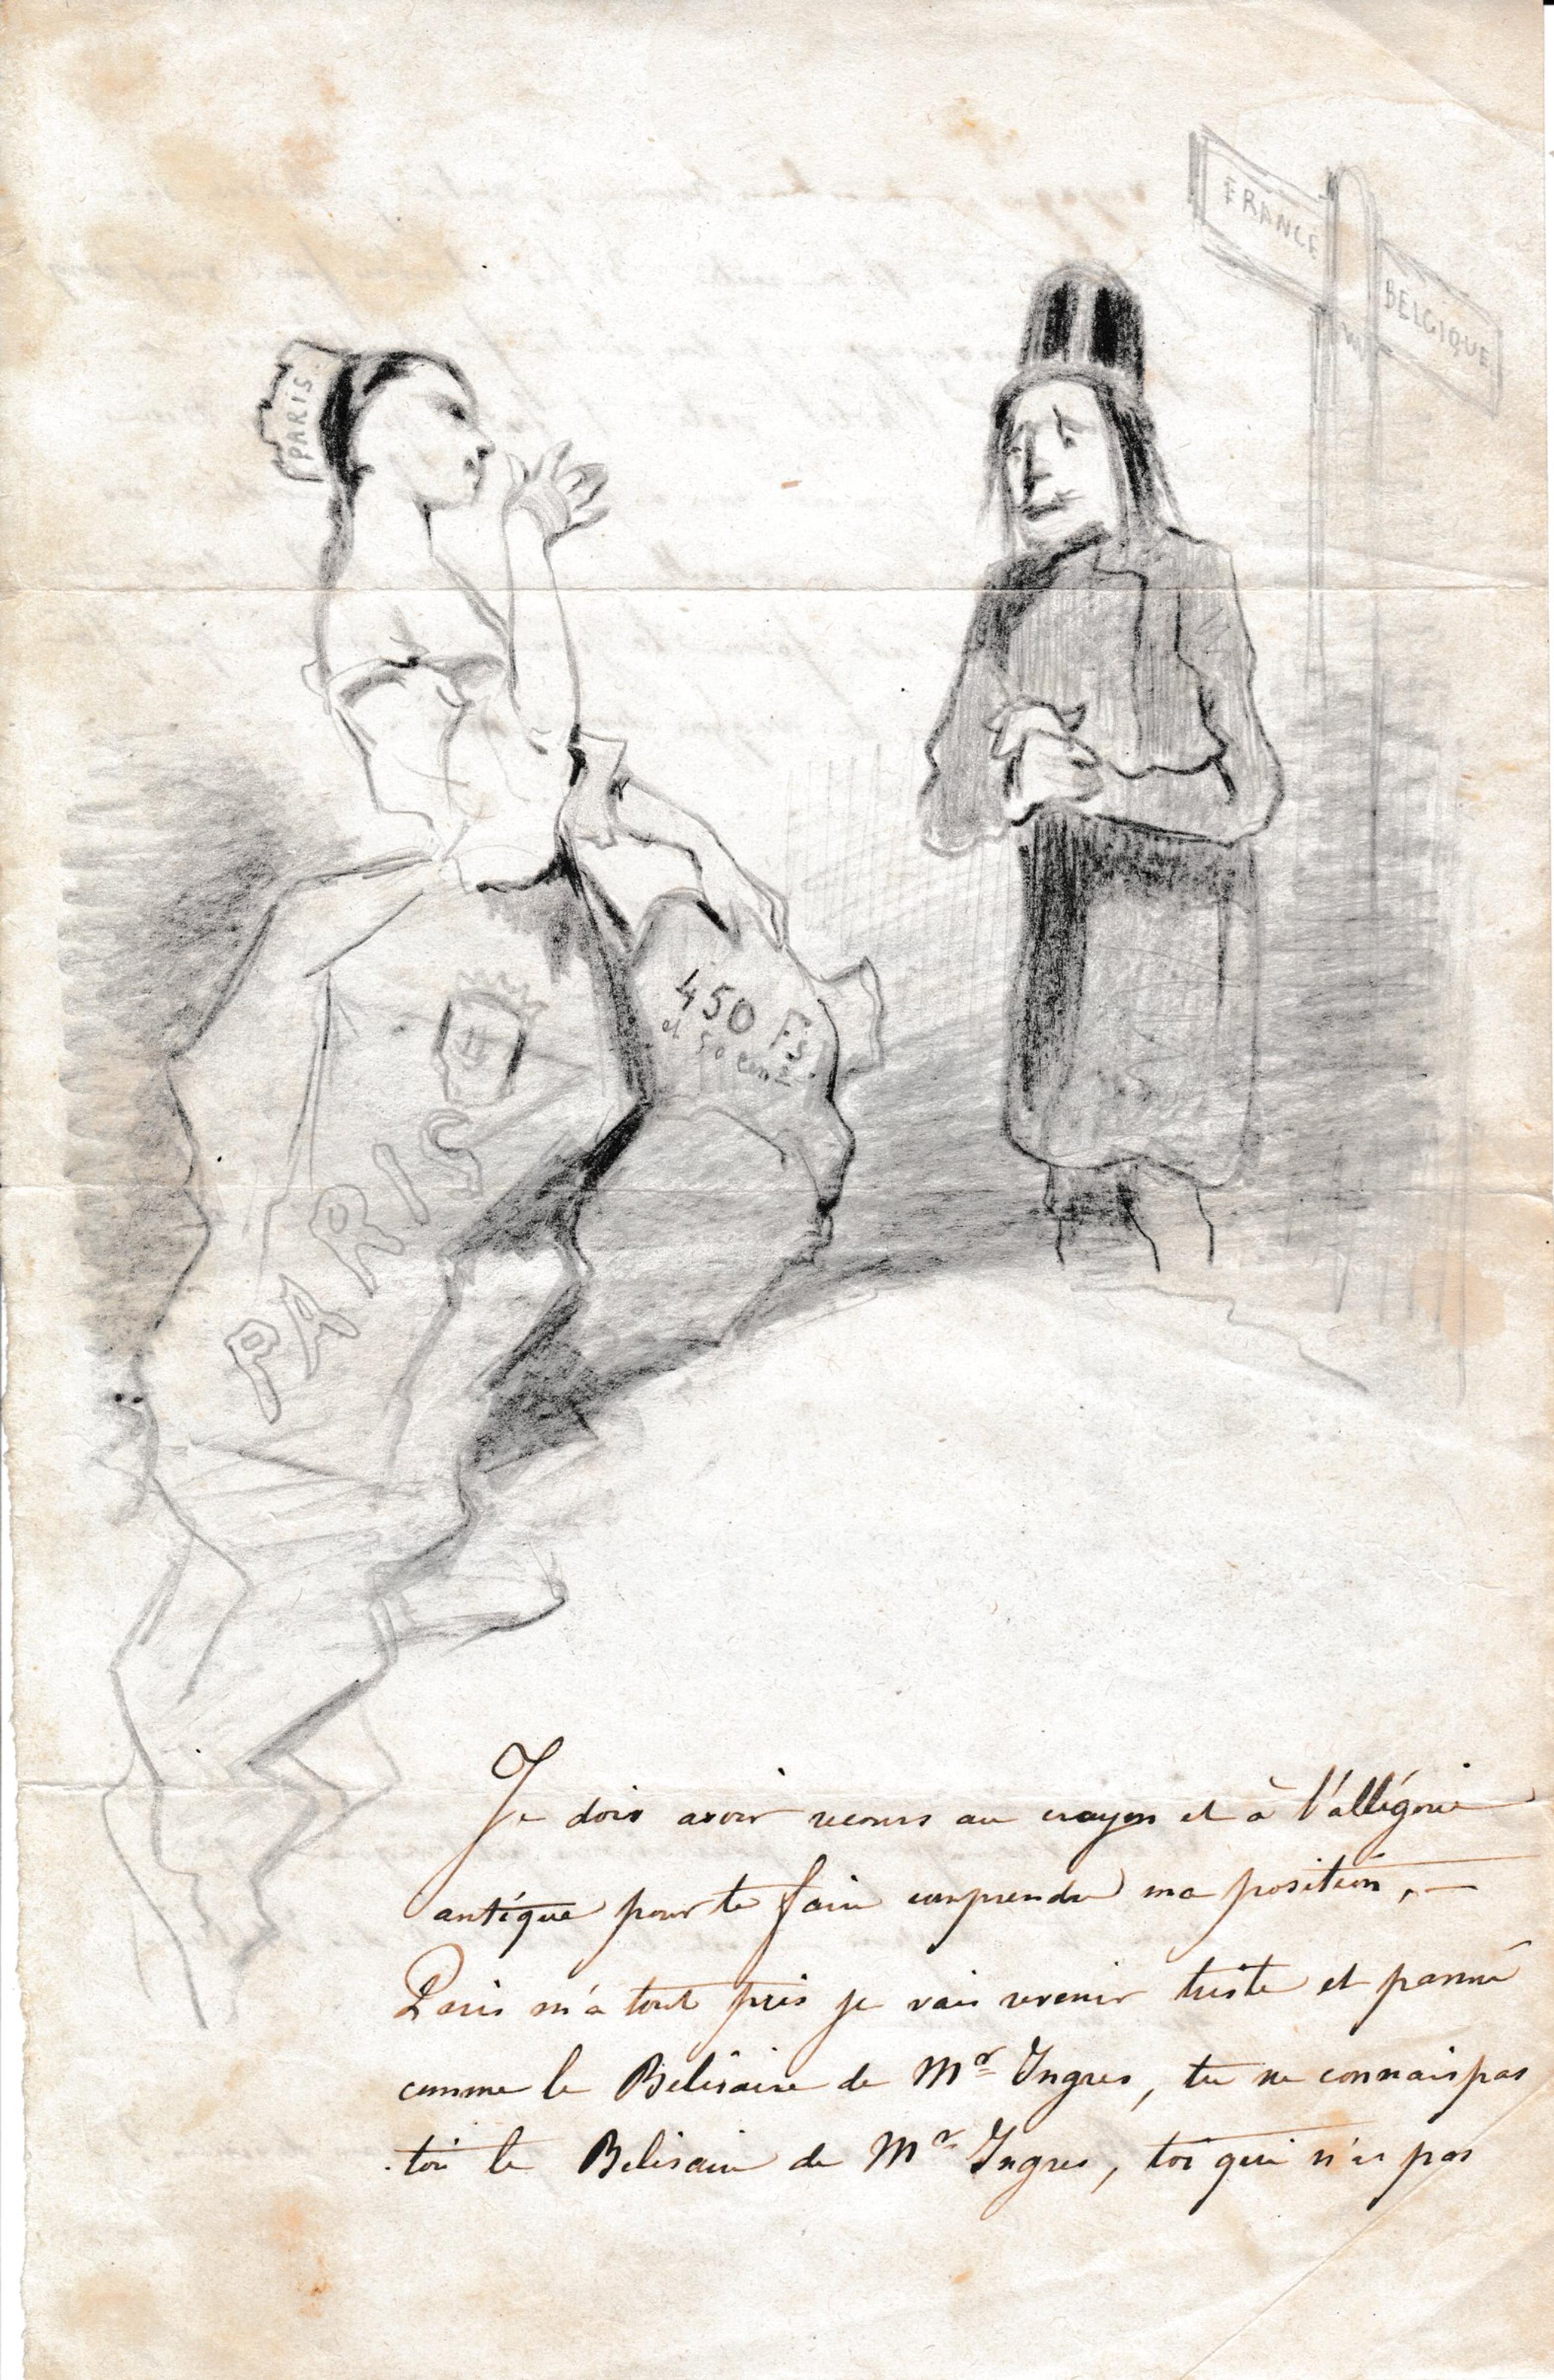 FRANCE
BELGIQUE
PARIS.
450 Fs.
et 50 cent
PARIS
Je dois avoir recours au crayon et à l'allégorie
antique pour te faire comprendre ma position, —
Paris m'a tout pris je vais revenir triste et panné
comme le Belisaire de Mr Ingres, tu ne connais pas
toi le Belisaire de Mr Ingres, toi qui n'es pas